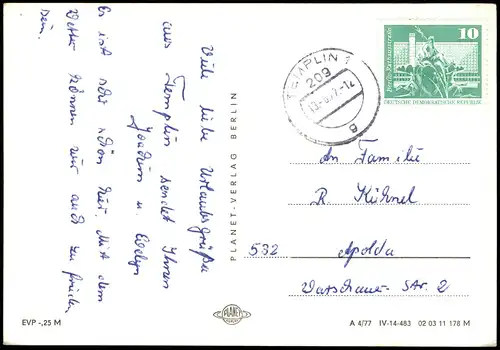 Viele liebe Urlaubsgrüße
aus Templin sendet Ihnen
Joachim u. Evelyn
Es ist sehr schön hier. Mit dem
Wetter können wir auch zu frieden
sein.
PLANET-VERLAG BERLIN
TEMPLIN 1
209
10
Berlin, Rathausstraße
DEUTSCHE DEMOKRATISCHE REPUBLIK
An Familie
R. Kühnel
532 Apolda
Warschauer Str. 2
PLANET
EVP -,25 M
A 4/77 IV-14-483 02 03 11 178 M